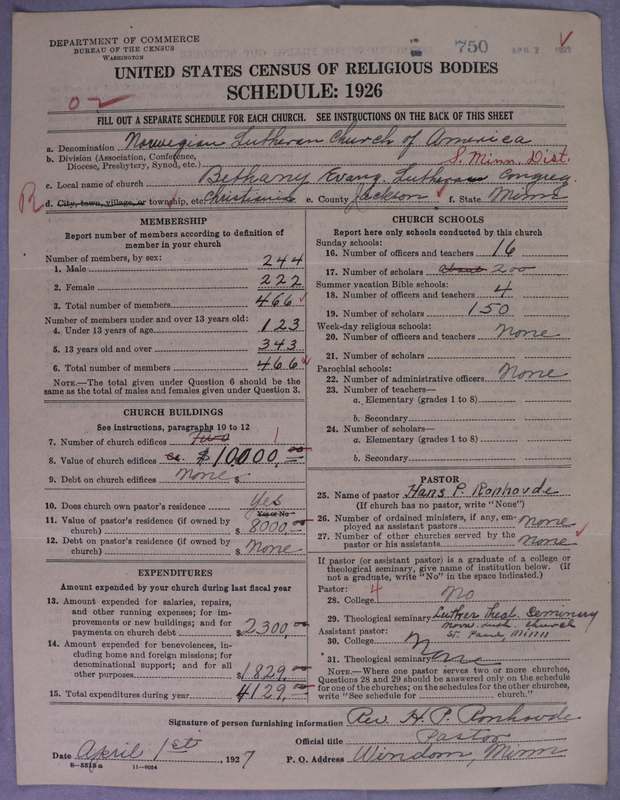 DEPARTMENT OF COMMERCE
BUREAU OF THE CENSUS
WASHINGTON
750
APR 2
UNITED STATES CENSUS OF RELIGIOUS BODIES
SCHEDULE: 1926
FILL OUT A SEPARATE SCHEDULE FOR EACH CHURCH. SEE INSTRUCTIONS ON THE BACK OF THIS SHEET
a. Denomination Norwegian Lutheran Church of America
b. Division (Association, Conference,
Diocese, Presbytery, Synod, etc.) S. Minn. Dist.
c. Local name of church Bethany Evang. Lutheran Congreg.
R d. City, town, village, or township, etc. Christiania e. County Jackson f. State Minn
MEMBERSHIP
Report number of members according to definition of
member in your church
Number of members, by sex:
1. Male 244
2. Female 222
3. Total number of members 466
Number of members under and over 13 years old:
4. Under 13 years of age 123
5. 13 years old and over 343
6. Total number of members 466
NOTE.—The total given under Question 6 should be the
same as the total of males and females given under Question 3.
CHURCH BUILDINGS
See instructions, paragraphs 10 to 12
7. Number of church edifices Two 1
8. Value of church edifices Ca. $10000,00
9. Debt on church edifices None $
10. Does church own pastor's residence Yes
Yes or No
11. Value of pastor's residence (if owned by
church) $8000,00
12. Debt on pastor's residence (if owned by
church) $None
EXPENDITURES
Amount expended by your church during last fiscal year
13. Amount expended for salaries, repairs,
and other running expenses; for im-
provements or new buildings; and for
payments on church debt $2300,00
14. Amount expended for benevolences, in-
cluding home and foreign missions; for
denominational support; and for all
other purposes $1829,00
15. Total expenditures during year $4129,00
CHURCH SCHOOLS
Report here only schools conducted by this church
Sunday schools:
16. Number of officers and teachers 16
17. Number of scholars about 200
Summer vacation Bible schools:
18. Number of officers and teachers 4
19. Number of scholars 150
Week-day religious schools:
20. Number of officers and teachers None
21. Number of scholars
Parochial schools:
22. Number of administrative officers None
23. Number of teachers—
a. Elementary (grades 1 to 8)
b. Secondary
24. Number of scholars—
a. Elementary (grades 1 to 8)
b. Secondary
PASTOR
25. Name of pastor Hans P. Ronhovde
(If church has no pastor, write "None")
26. Number of ordained ministers, if any, em-
ployed as assistant pastors none
27. Number of other churches served by the
pastor or his assistants none
If pastor (or assistant pastor) is a graduate of a college or
theological seminary, give name of institution below. (If
not a graduate, write "No" in the space indicated.)
Pastor:
28. College 4 No
29. Theological seminary Luther Theol. Seminary
Norw. Luth. Church
St. Paul, Minn
Assistant pastor:
30. College
31. Theological seminary None
NOTE.—Where one pastor serves two or more churches,
Questions 28 and 29 should be answered only on the schedule
for one of the churches; on the schedules for the other churches,
write "See schedule for church."
Signature of person furnishing information Rev. H. P. Ronhovde
Official title Pastor
Date April 1st 1927 P. O. Address Windom, Minn
8—5518 a 11—9054